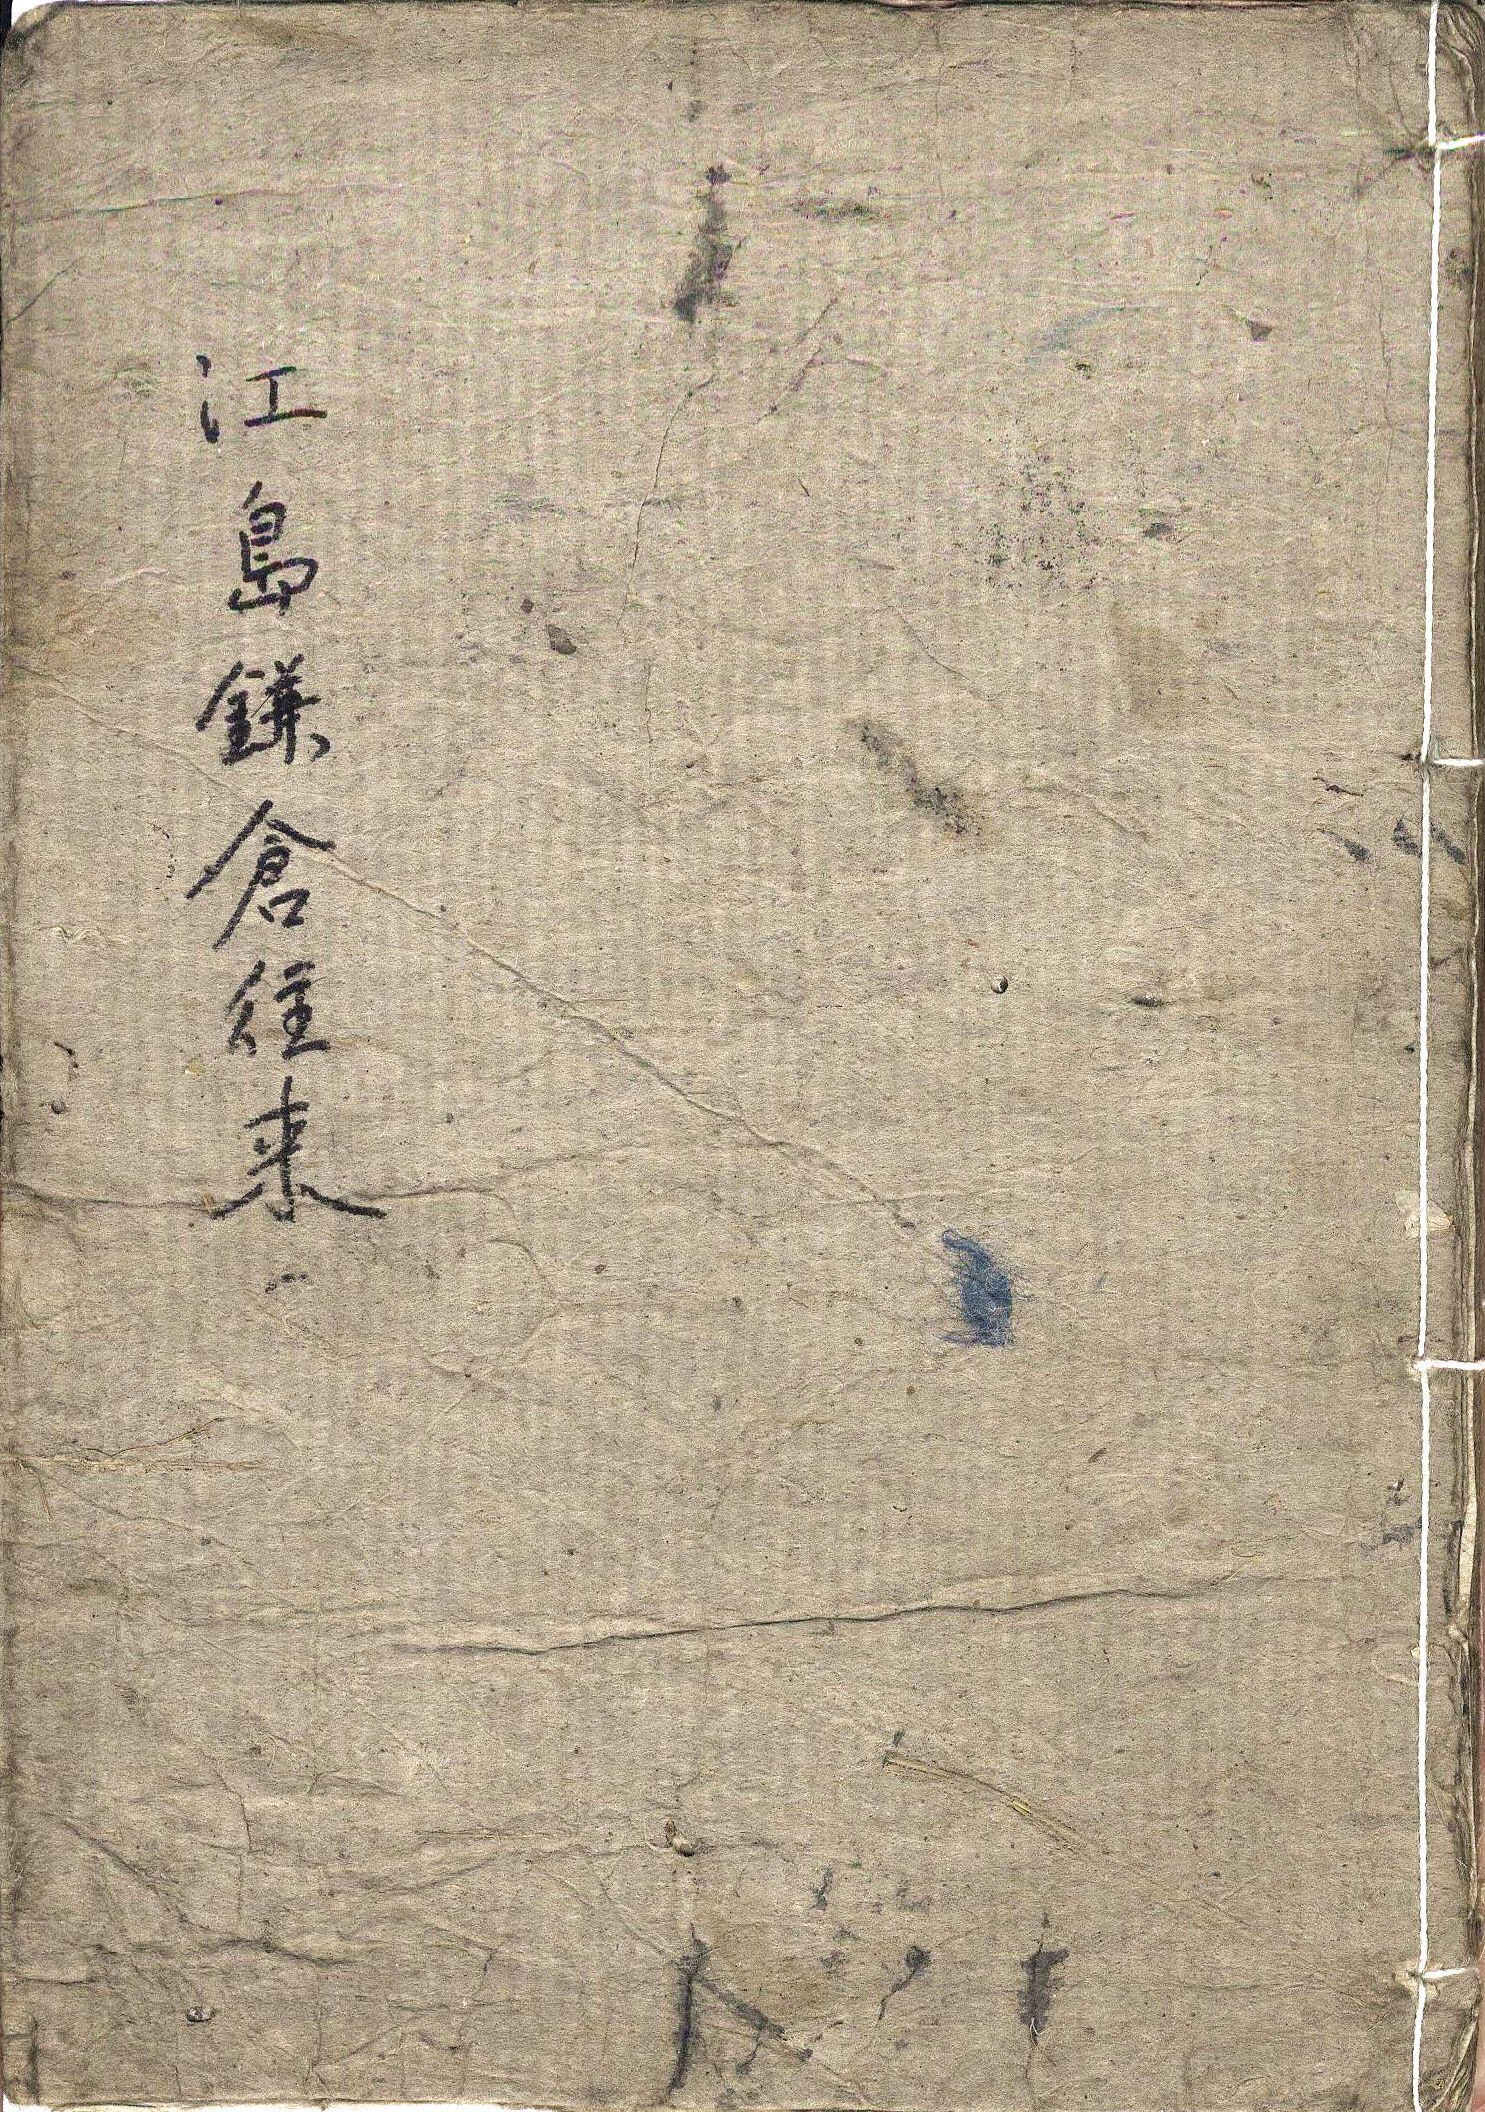 江島鎌倉往来